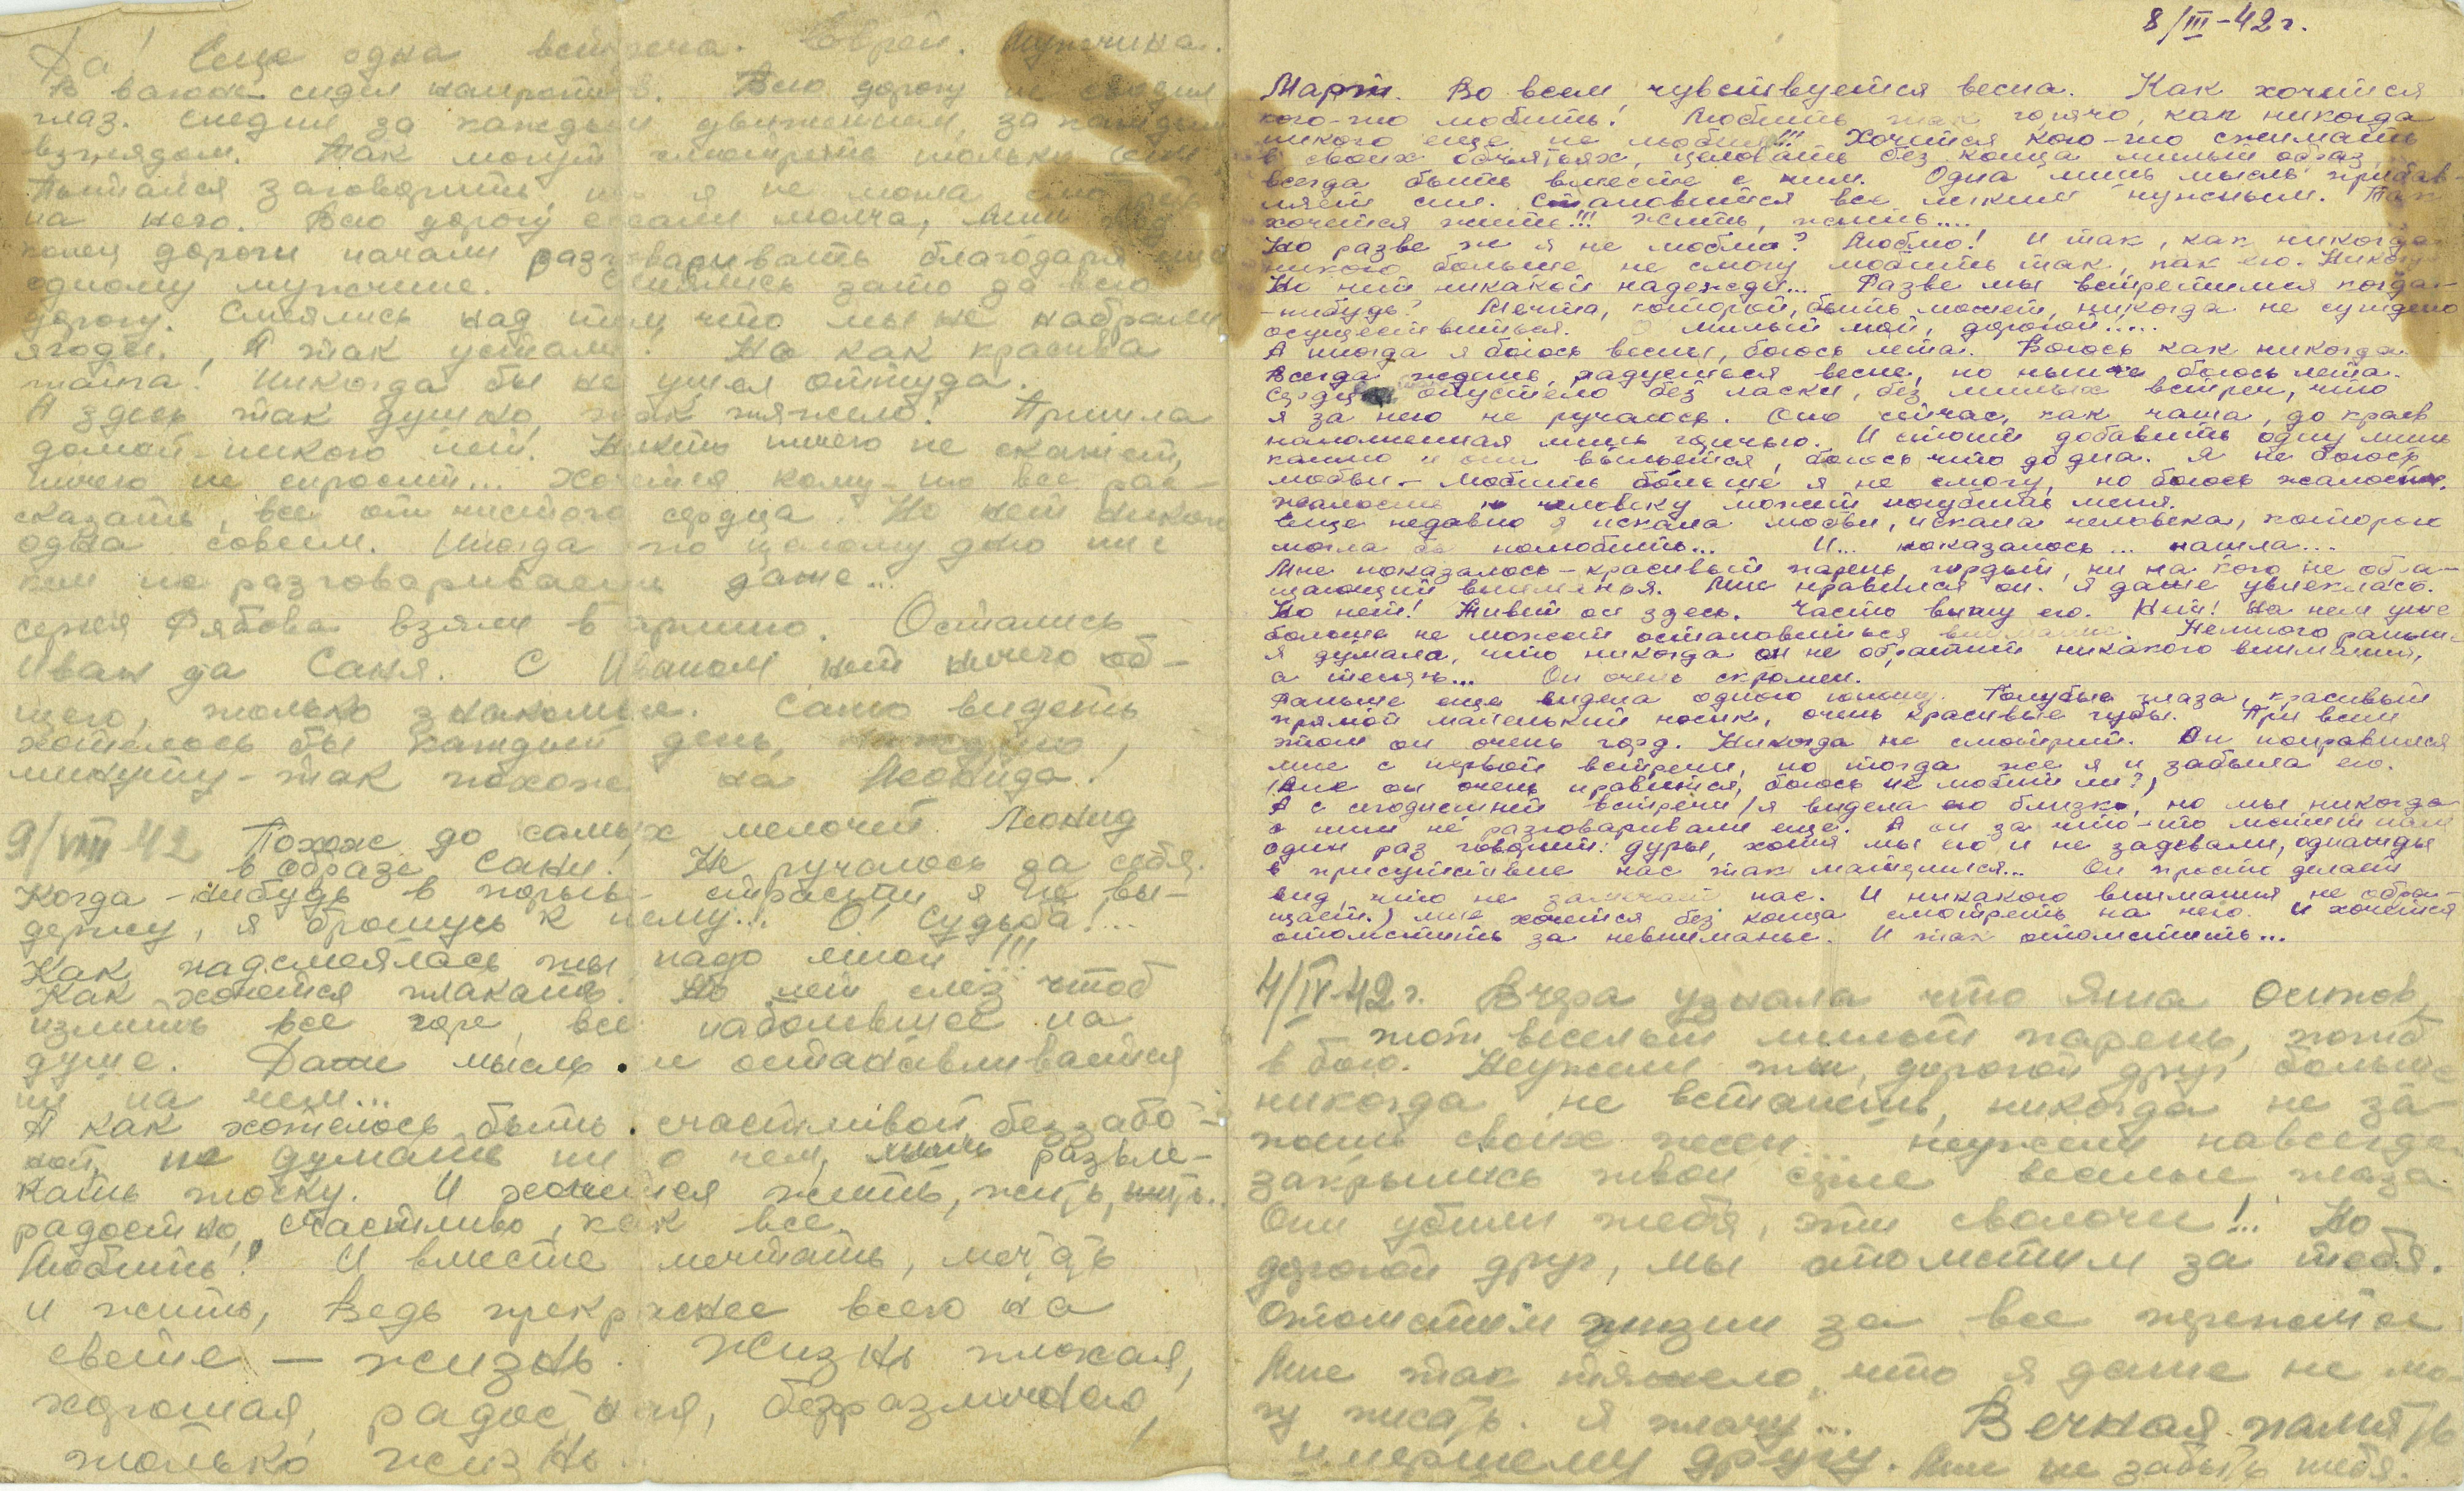 Да! Еще одна встреча. Еврей. Мужчина.
В вагоне сидел напротив. Всю дорогу не сводил
глаз. Следил за каждым движением, за каждым
взглядом. Так могут смотреть только
Пытался заговорить, но я не могла смотреть
на него. Всю дорогу ехали молча, лишь
конец дороги начали разговаривать благодаря
одному мужчине. Смеялись зато за всю
дорогу. Смеялись над тем, что мы не набрали
ягоды. А так устали! Но как красива
тайга! Никогда бы не ушел оттуда.
А здесь так душно, так тяжело! Пришла
домой - никого нет. Никто ничего не скажет,
ничего не спросит... Хочется кому-то все рас-
сказать, все от чистого сердца. Но нет никого
одна совсем. Иногда по целому дню ни с
кем не разговариваешь даже...
Сергея Рябова взяли в армию. Остались
Иван да Саня. С Иваном нет ничего об-
щего, только знакомые. Саню видеть
хотелось бы каждый день, каждую
минуту - так похож на Леонида!
9/VIII 42 Похож до самых мелочей. Леонид
в образе Сани! Не ручаюсь за себя.
Когда-нибудь в порыве страсти я не вы-
держу, я брошусь к нему... О! Судьба!...
Как надсмеялась ты надо мной!!!
Как хочется плакать. Но нет слез чтоб
излить все горе, все наболевшее на
душе. Даже мысль и останавливается
ни на чем...
А как хотелось быть счастливой, беззабо-
ной, не думать ни о чем, лишь развле-
кать тоску. И хочется жить, жить, жить..
радостно, счастливо, как все.
Любить! И вместе мечтать, мечтать
и жить, Ведь прекраснее всего на
свете — жизнь. Жизнь плохая,
хорошая, радостная, безразлично,
только жизнь.
8/III-42 г.
Март. Во всем чувствуется весна. Как хочется
кого-то любить! Любить так горячо, как никогда
никого еще не любила!!! Хочется кого-то сжимать
в своих объятьях, целовать без конца милый образ,
всегда быть вместе с ним. Одна лишь мысль прибав-
ляет сил. Становится все легким нужным. Так
хочется жить!!! Жить, жить....
Но разве ж я не люблю? Люблю! И так, как никогда
никого больше не смогу любить так, как его. Никогда
Но нет никакой надежды... Разве мы встретимся когда-
-нибудь? Мечта, которой, быть может, никогда не суждено
осуществиться. О милый мой, дорогой.....
А иногда я боюсь весны, боюсь лета. Боюсь как никогда.
Всегда ждешь, радуешься весне, но нынче боюсь лета.
Сердце опустело без ласки, без милых встреч, что
я за него не ручаюсь. Оно сейчас, как чаша, до краев
наполненная лишь горечью. И стоит добавить одну лишь
каплю и она выльется, боюсь что до дна. Я не боюсь
любви - любить больше я не смогу, но боюсь жалости.
жалость к человеку может погубить меня.
Еще недавно я искала любви, искала человека, которого
могла бы полюбить... И... показалось... нашла...
Мне показалось - красивый парень, гордый, ни на кого не обра-
щающий вниманья. Мне нравился он. Я даже увлеклась.
Но нет! Живет он здесь. Часто вижу его. Нет! На нем уже
больше не может остановиться внимание. Немного раньше
я думала, что никогда он не обратит никакого внимания,
а теперь... Он очень скромен.
Раньше еще видела одного юношу. Голубые глаза, красивый
прямой маленький носик, очень красивые губы. При всем
этом он очень горд. Никогда не смотрит. Он понравился
мне с первой встречи, но тогда же я и забыла его.
(Мне он очень нравится, боюсь не любит ли?)
А с сегодняшней встречи (я видела его близко, но мы никогда
с ним не разговаривали еще. А он за что-то может нам
один раз говорит: дуры, хотя мы его и не задевали, однажды
в присутствие нас так матерился... Он просто делает
вид, что не замечает нас. И никакого внимания не обра-
щает.) мне хочется без конца смотреть на него. И хочется
отомстить за невниманье. И так отомстить...
4/IV-42 г. Вчера узнала что Яша Осипов,
тот веселый милый парень, погиб
в бою. Неужели ты, дорогой друг больше
никогда не встанешь, никогда не за-
поешь своих песен... Неужели навсегда
закрылись твои серые веселые глаза.
Они убили тебя, эти сволочи!.. Но
дорогой друг, мы отомстим за тебя.
Отомстим жизни за все пережитое
Мне так тяжело, что я даже не мо-
гу писать. Я плачу... Вечная память
умершему другу. Мне не забыть тебя.